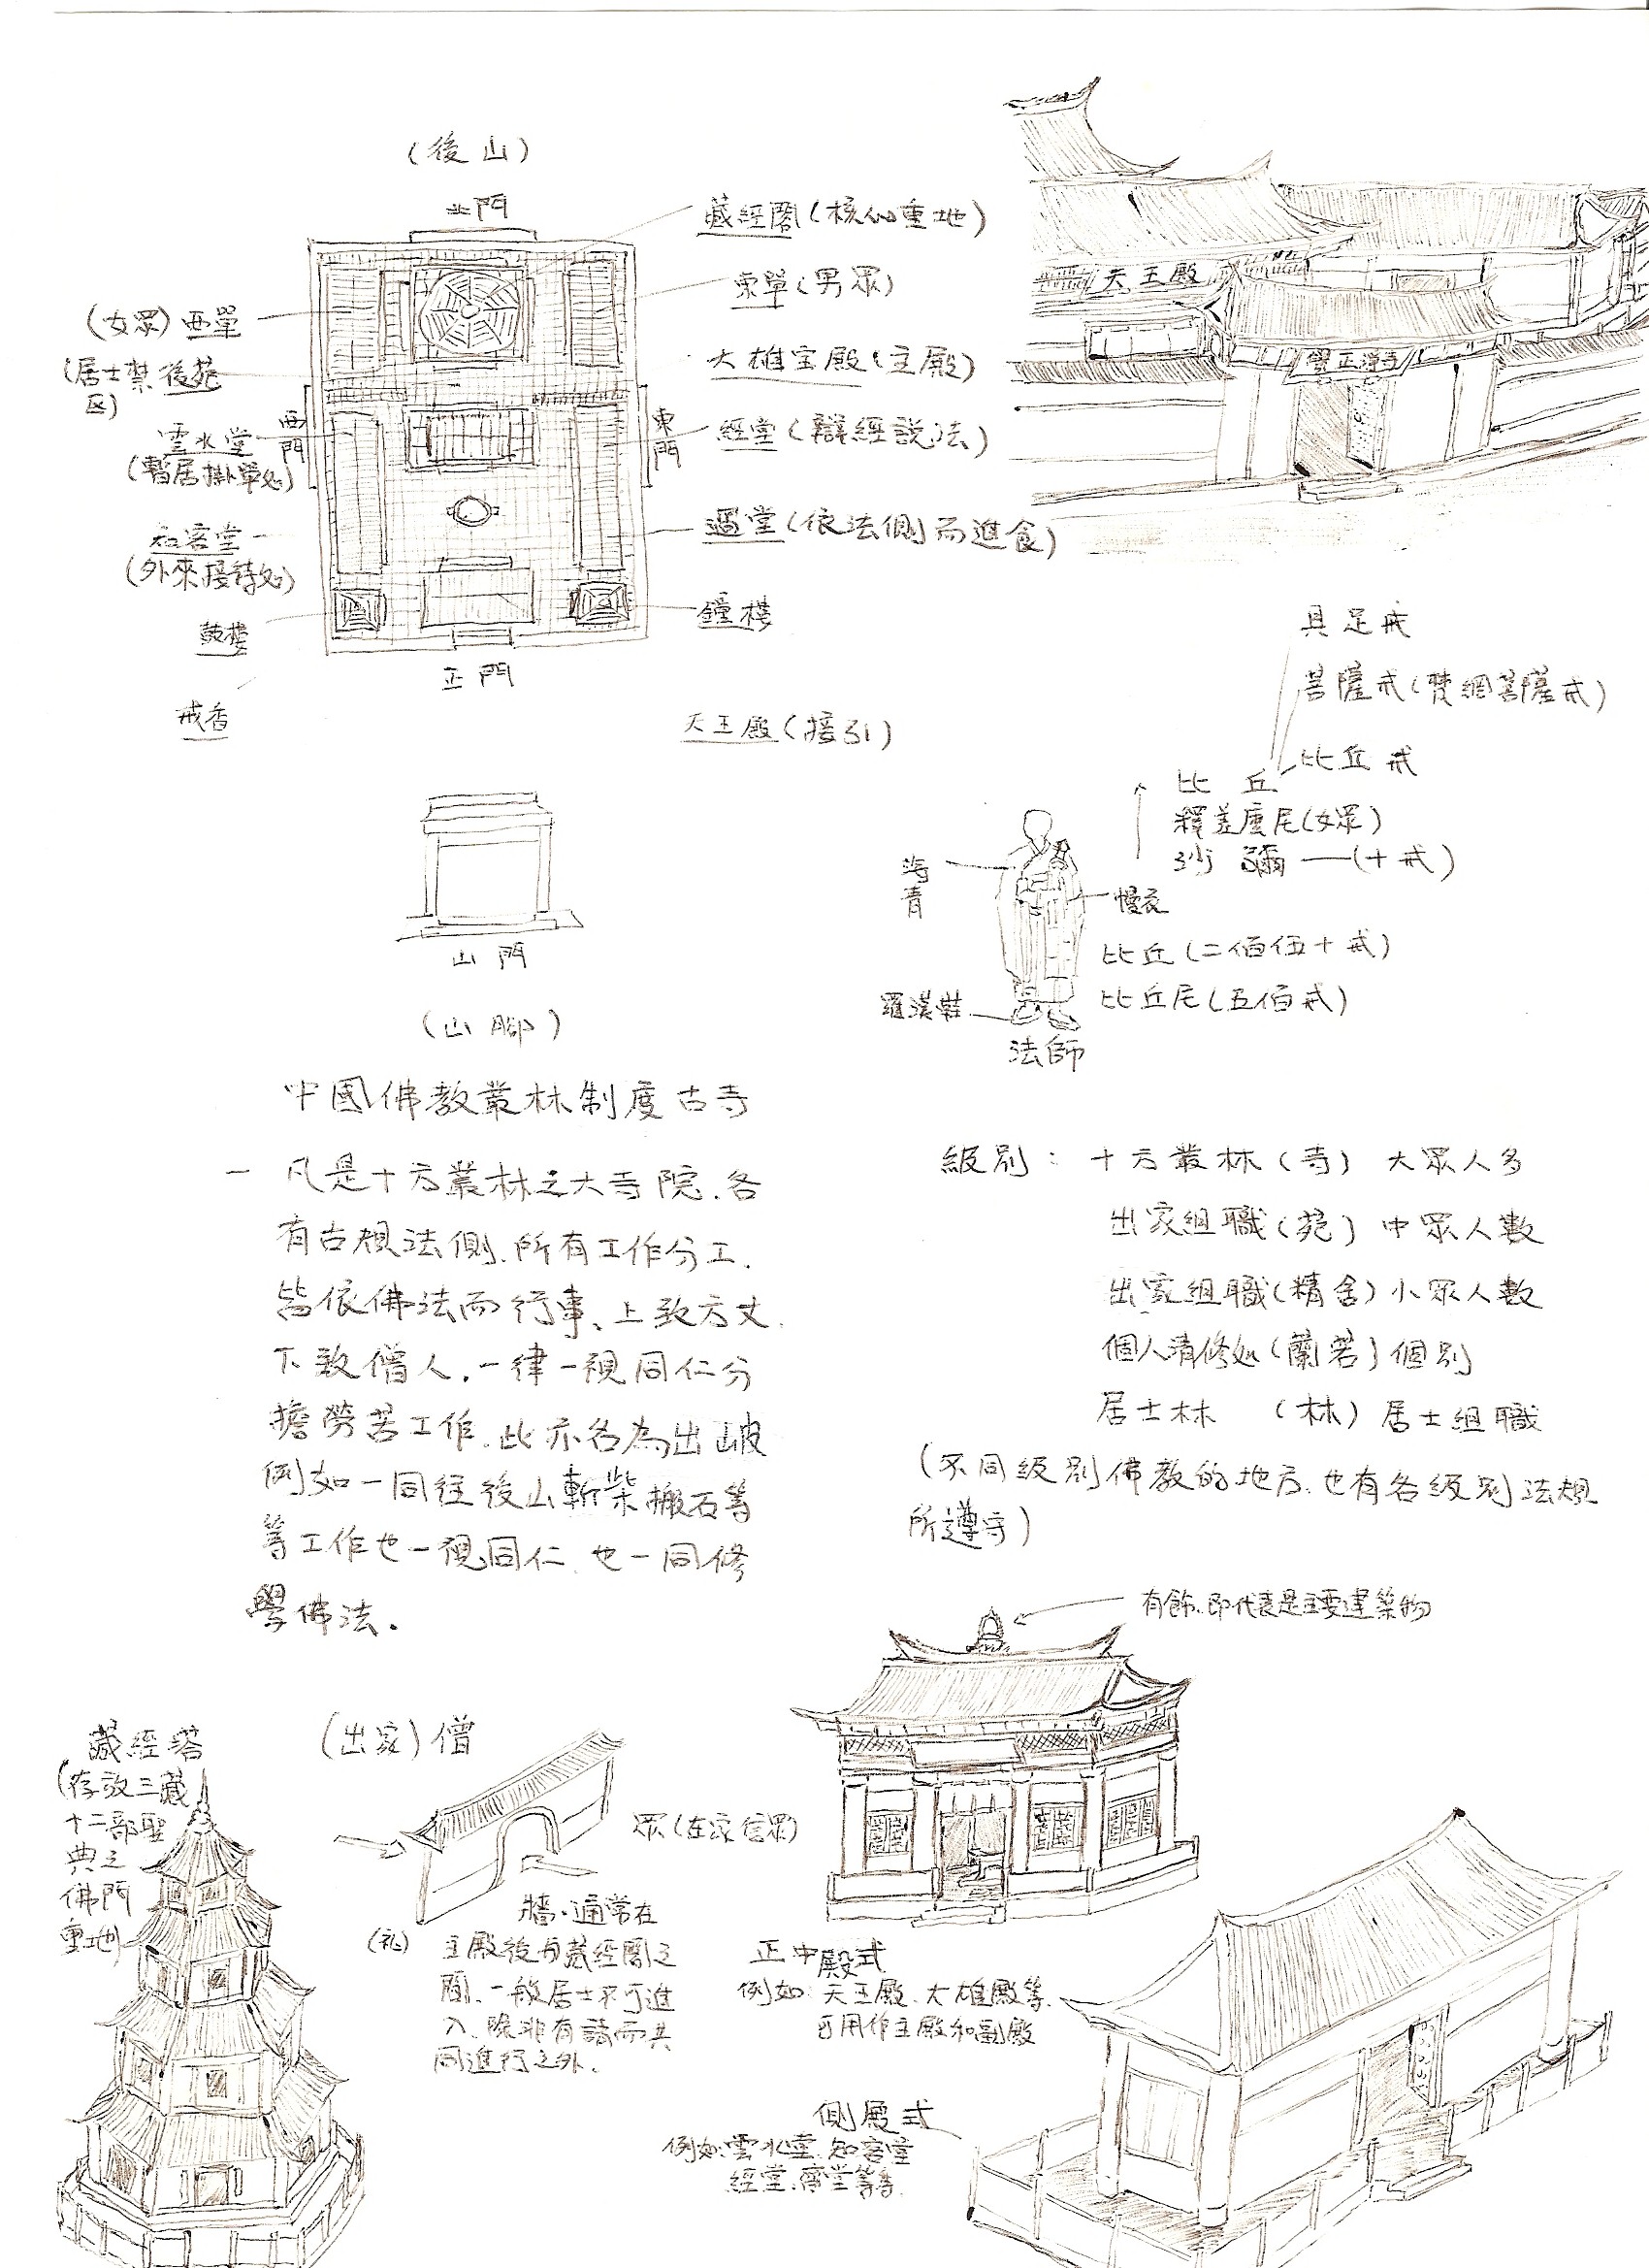 (後山)
北門
藏經閣(核心重地)
東單(男眾)
(女眾)西單
大雄宝殿(主殿)
(居士禁後苑
区)
西門
東門
經堂(辯經說法)
雲水堂
(暫居掛單処)
過堂(依法側而進食)
知客堂
(外來接待処)
鐘樓
鼓樓
正門
戒香
天王殿(接引)
山門
(山腳)
天王殿
覺正淨寺
具足戒
菩薩戒(梵網菩薩戒)
比丘戒
比丘
釋差麼尼(女眾)
沙彌—(十戒)
海青
慢衣
比丘(二佰伍十戒)
比丘尼(五佰戒)
羅漢鞋
法師
中國佛教叢林制度古寺
一 凡是十方叢林之大寺院.各
有古規法側.所有工作分工.
皆依佛法而行事、上致方丈.
下致僧人.一律一視同仁分
擔勞苦工作.此亦名為出坡
例如一同往後山斬柴搬石等
等工作也一視同仁.也一同修
學佛法.
級別: 十方叢林(寺) 大眾人多
出家組職(苑) 中眾人數
出家組職(精舍)小眾人數
個人清修処(蘭若)個別
居士林 (林)居士組職
(不同級別佛教的地方.也有各級別法規
所遵守)
有飾.即代表是主要建築物
藏經塔
(存放三藏
十二部聖
典之
佛門
重地)
(出家)僧
眾(在家信眾)
牆.通常在
主殿後与藏經閣之
間.一般居士不可進
入.除非有請而共
同進行之外.
正中殿式
例如:天王殿.大雄殿等.
可用作主殿和副殿
側殿式
例如:雲水堂.知客堂
經堂.齋堂等等.